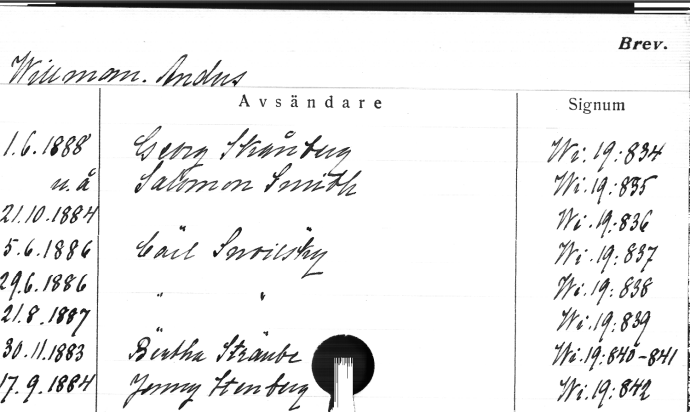 Brev.
Willman. Andus
Avsändare Signum
1.6.1888 Georg Skånberg Wi.19:834
u.å Salomon Smith Wi.19:835
21.10.1884 Wi.19:836
5.6.1886 Carl Snoilsky Wi.19:837
29.6.1886 " " Wi.19:838
21.8.1887 Wi.19:839
30.11.1883 Bertha Straube Wi.19:840-841
17.9.1884 Jenny Stenberg Wi.19:842